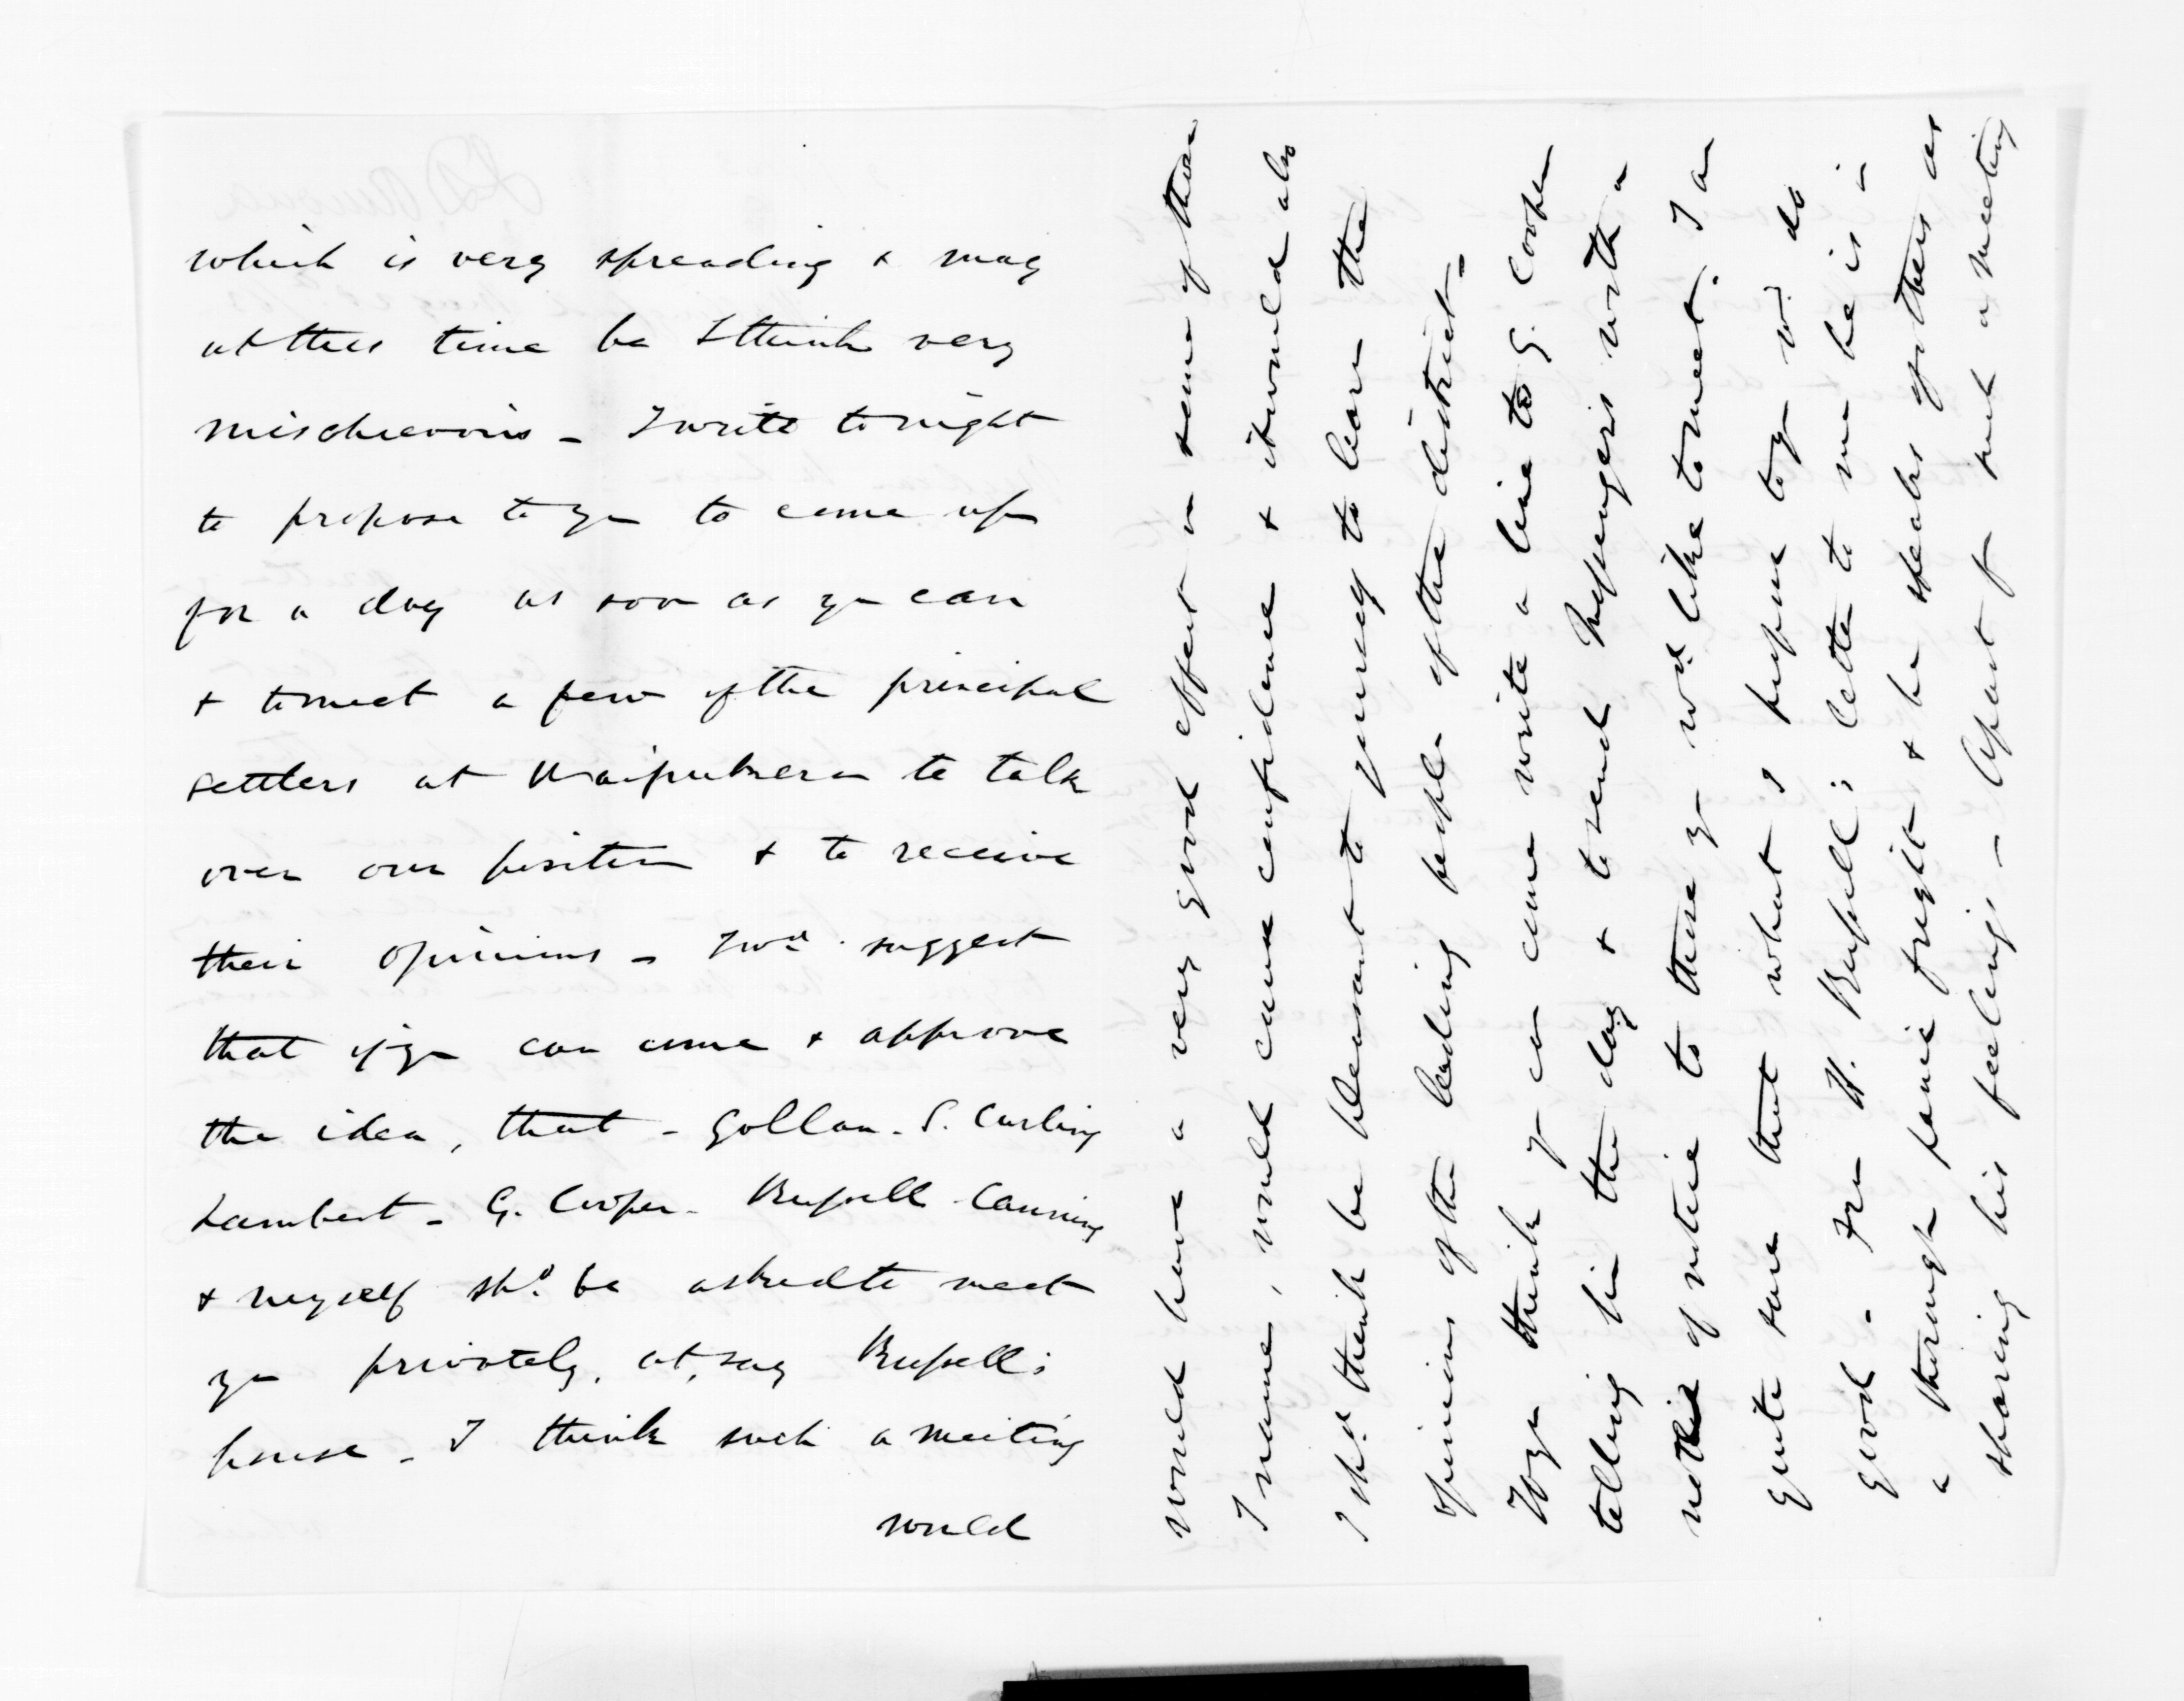 which is very spreading & may
at this time be I think very
mischievous - I write tonight
to propose to you to come up
for a day as soon as you can
& to meet a few of the principal
settlers at Waipukurau to talk
over our position & to receive
their opinions - I wd. suggest
that if you can come & approve
the idea, that - Gollan - S. Carling
Lambert - G. Cooper - Russell - Canning
& myself shd. be asked to meet
you privately, at, say Russell's
house - I think such a meeting
would
would have a very good effect on some of those
I name, would cause confidence & it would also
I shd. think be pleasant to yourself to learn the
opinions of the leading people of the district -
If you think you can come write a line to G. Cooper
telling him the day & to send messengers with a
notice to those you wd. like to meet. I am
quite sure that what I propose to you wd. do
good - From H. Russell's letter to me he is in
a thorough panic fright & he speaks of others as
sharing his feelings - Apart from such a meeting